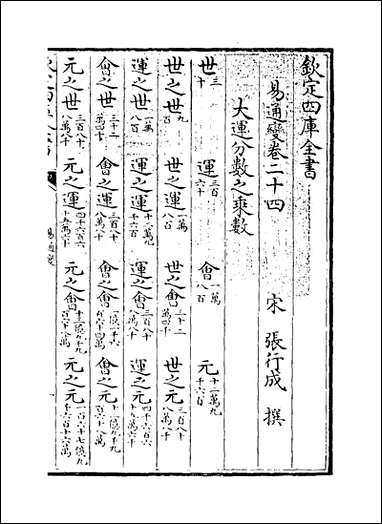 欽定四庫全書
易通變卷二十四 宋 張行成 撰
大運分數之乘數
世三十 運三百六十 會一萬八百 元十二萬九千六百
世之世九百 世之運一萬八百 世之會三十二萬四千 世之元三百八十八萬八千
運之世一萬八百 運之運十二萬九千六百 運之會三百八十八萬八千 運之元四千六百六十五萬六千
會之世三十二萬四千 會之運三百八十八萬八千 會之會一億一千六百六十四萬 會之元十三億九千九百六十八萬
元之世三百八十八萬八千 元之運四千六百六十五萬六千 元之會十三億九千九百六十八萬 元之元一百六十七億九千六百一十六萬
易通變